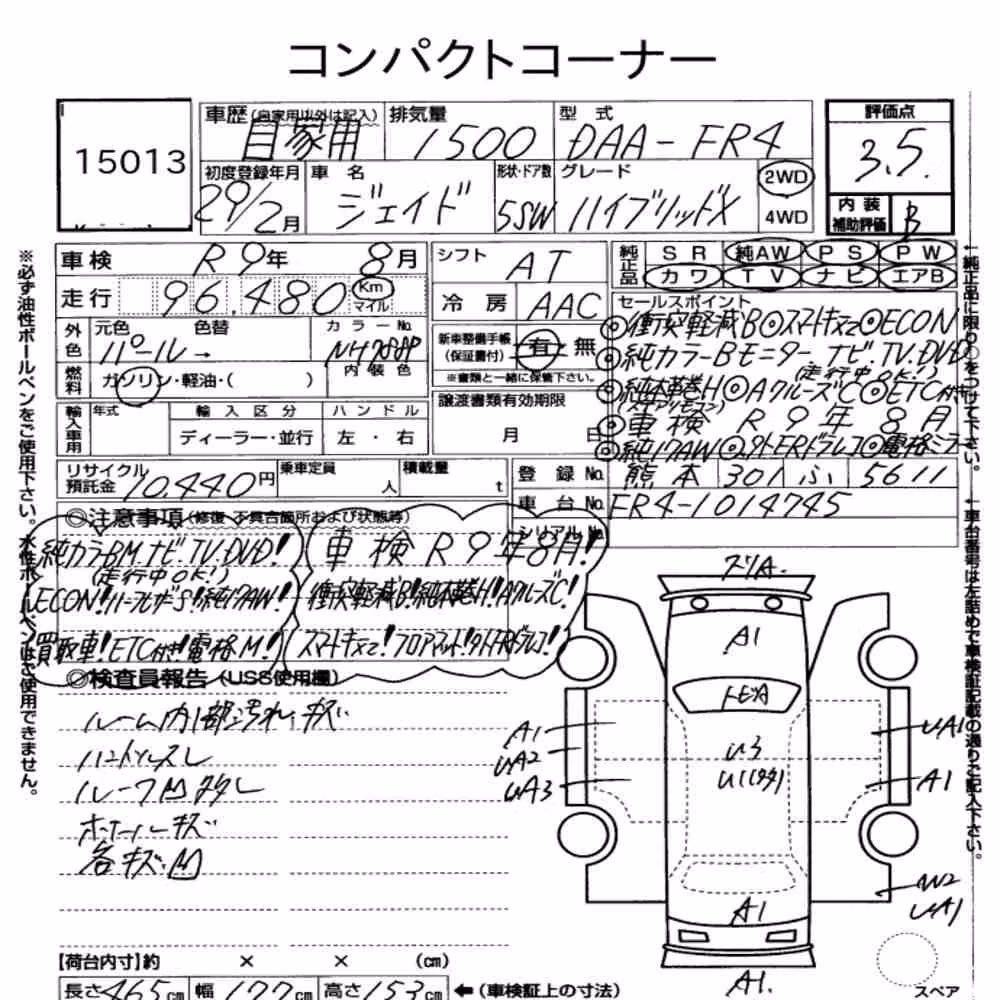 コンパクトコーナー
15013
車歴 (自家用以外は記入) 自家用
排気量 1500
型式 DAA-FR4
評価点 3.5
初度登録年月 29/2月
車名 ジェイド
形状・ドア数 5SW
グレード ハイブリッドX
2WD
4WD
内装補助評価 B
車検 R9年 8月
シフト AT
純正品 SR 純AW PS PW
カワ TV ナビ エアB
走行 96.480 Km マイル
冷房 AAC
セールスポイント
◎衝突軽減B◎スマートキー2◎ECON
◎純カラーBモニター.ナビ.TV.DVD
(走行中OK!)
◎純本革巻H◎AクルーズC◎ETC付
◎車検 R9年8月
◎純17AW◎外F.Rドラレコ◎電格ミラー
外色 元色 色替
パール→
カラーNo. NH788P
内装色
新車整備手帳(保証書付) 有・無
※書類と一緒に保管下さい。
燃料 ガソリン・軽油・( )
譲渡書類有効期限
月 日
輸入車用 年式 輸入区分 ハンドル
ディーラー・並行 左・右
リサイクル預託金 10.440円
乗車定員 人
積載量 t
登録No. 熊本 301 ふ 5611
車台No. FR4-1014745
シリアルNo.
◎注意事項(修復・不具合箇所および状態等)
純カラーBM.ナビ.TV.DVD!
(走行中OK!)
ECON!ハーフレザーS!純17AW!
買取車!ETC付!電格M!
車検R9年8月!
衝突軽減B!純本革巻H!AクルーズC!
スマートキー2!フロアマット!外F.Rドラレコ!
◎検査員報告(USS使用欄)
ルーム内1部汚れ、キズ
ハンドルスレ
ルーフM多し
ホイールキズ
各キズM
フリA.
A1
トビA
A1
UA2
UA3
U3
U1(多数)
UA1
A1
W2
UA1
A1
A1.
スペア
【荷台内寸】約 × × (cm)
長さ465cm 幅177cm 高さ153cm ←(車検証上の寸法)
※必ず油性ボールペンをご使用下さい。水性ボールペンはご使用できません。
←純正品に限り○をつけて下さい。
←車台番号は左詰めで車検証記載の通りご記入下さい。